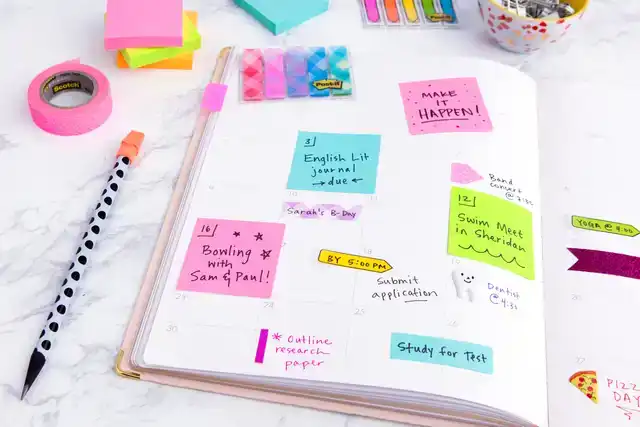 Scotch
Post-it
MAKE
IT
HAPPEN!
3
English Lit
journal
→due←
Band
concert
@ 7:30
Sarah's B-Day
12
Swim Meet
in Sheridan
YOGA @ 9:00
16
Bowling
with
Sam & Paul!
BY 5:00 PM
Submit
application
Dentist
@ 4:30
23
24
25
30
* Outline
research
paper
Study for Test
PIZZ
DAY